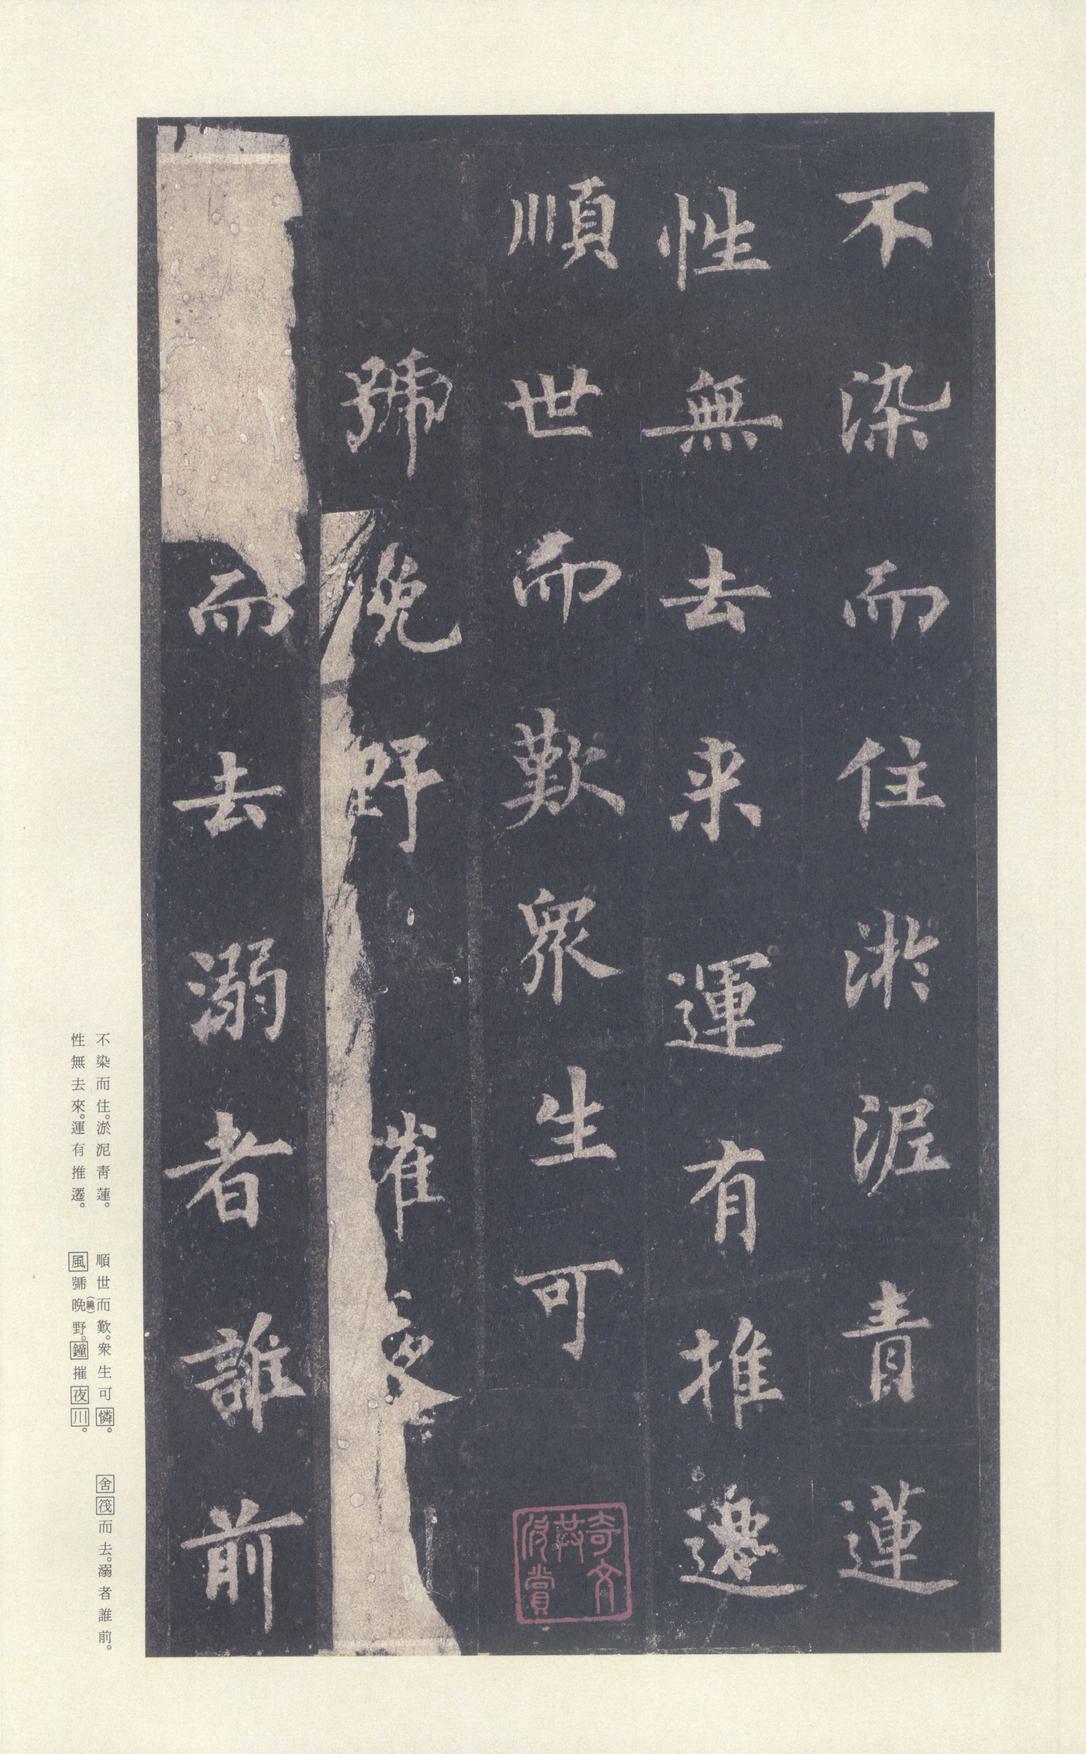 不染而住淤泥青蓮
性無去来運有推遷
順世而歎衆生可
號晚野 夜
而去溺者誰前
奇文共賞
不染而住。淤泥青蓮。 順世而歎。衆生可憐。 舍筏而去。溺者誰前。
性無去來。運有推遷。 風號晚(曉)野。鐘摧夜川。